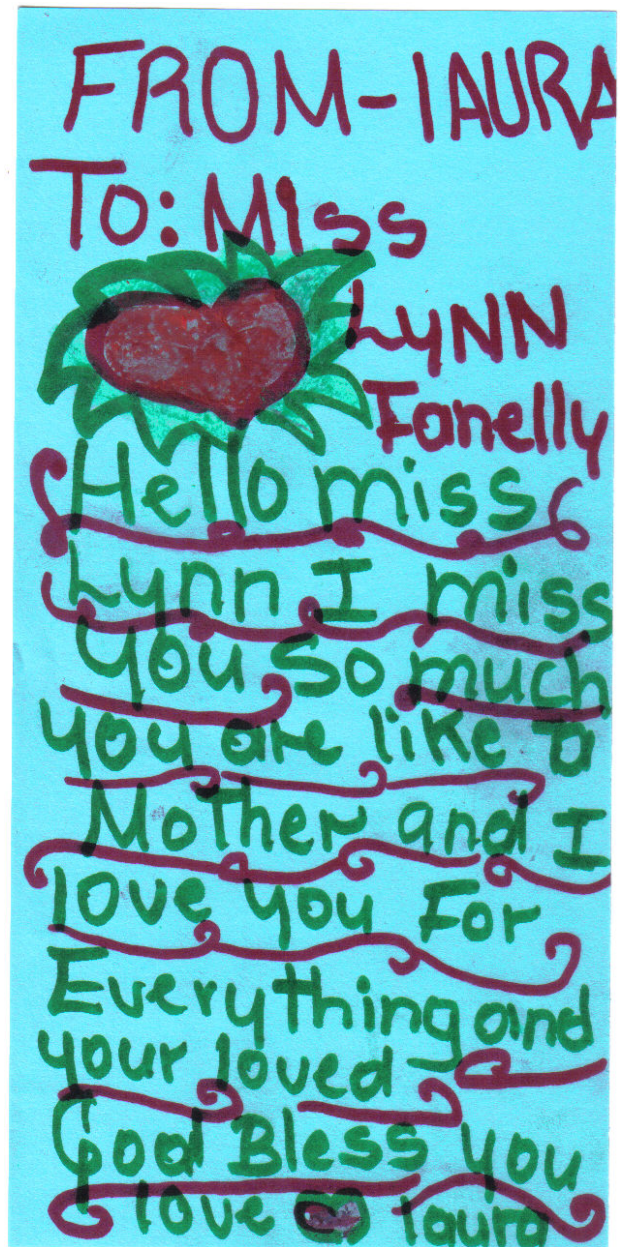 FROM-lAURA
To: Miss
Lynn
Fanelly
Hello miss
Lynn I miss
you so much
you are like a
Mother and I
love you For
Everything and
your loved
God Bless you
love laura